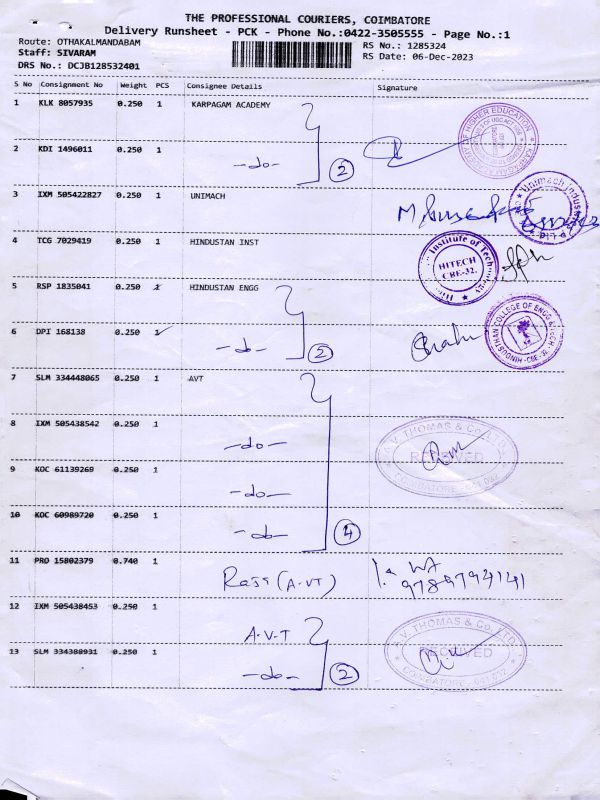 THE PROFESSIONAL COURIERS, COIMBATORE
Delivery Runsheet - PCK - Phone No.:0422-3505555 - Page No.:1
Route: OTHAKALMANDABAM RS No.: 1285324
Staff: SIVARAM RS Date: 06-Dec-2023
DRS No.: DCJB128532401
S No Consignment No Weight PCS Consignee Details Signature
1 KLK 8057935 0.250 1 KARPAGAM ACADEMY
2 KDI 1496011 0.250 1 -do- 2
3 IXM 505422827 0.250 1 UNIMACH
4 TCG 7029419 0.250 1 HINDUSTAN INST
HITECH
CBE-32.
5 RSP 1835041 0.250 1 HINDUSTAN ENGG
6 DPI 168138 0.250 1 -do- 2
7 SLM 334448065 0.250 1 AVT
8 IXM 505438542 0.250 1 -do-
9 KOC 61139269 0.250 1 -do-
10 KOC 60989720 0.250 1 -do- 4
11 PRD 15802379 0.740 1 (A.VT)
12 IXM 505438453 0.250 1 A.V.T
13 SLM 334388931 0.250 1 -do- 2
V. THOMAS & Co. LTD.
RECEIVED
COIMBATORE